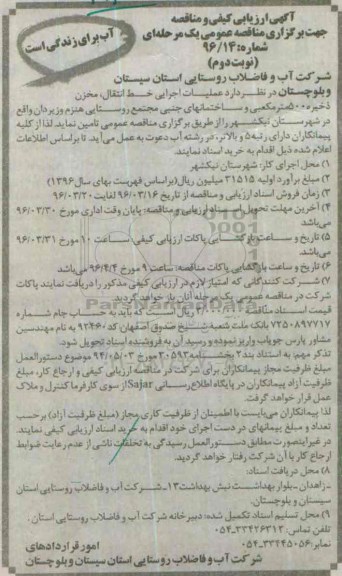 آگهی ارزیابی کیفی و مناقصه
جهت برگزاری مناقصه عمومی یک مرحله‌ای
شماره: ۹۶/۱۴
(نوبت دوم)
آب برای زندگی است
شرکت آب و فاضلاب روستایی استان سیستان
وبلوچستان در نظر دارد عملیات اجرایی خط انتقال، مخزن
ذخیره ۵۰۰ مترمکعبی و ساختمانهای جنبی مجتمع روستایی هنزم وزیردان واقع
در شهرستان نیکشهر را از طریق برگزاری مناقصه عمومی تامین نماید. لذا از کلیه
پیمانکاران دارای رتبه ۵ و بالاتر، در رشته آب دعوت به عمل می‌آید. تا براساس اطلاعات
اعلام شده ذیل اقدام به خرید اسناد نمایند.
۱) محل اجرای کار: شهرستان نیکشهر
۲) مبلغ برآورد اولیه ۳۱۵۱۵ میلیون ریال (براساس فهرست بهای سال ۱۳۹۶)
۳) زمان فروش اسناد ارزیابی و مناقصه از تاریخ ۹۶/۰۳/۱۶ لغایت ۹۶/۰۳/۲۰
۴) آخرین مهلت تحویل اسناد ارزیابی و مناقصه: پایان وقت اداری مورخ ۹۶/۰۳/۳۰
می‌باشد.
۵) تاریخ و ساعت بازگشایی پاکات ارزیابی کیفی ساعت ۱۰ مورخ ۹۶/۰۳/۳۱
می‌باشد.
۶) تاریخ و ساعت بازگشایی پاکات مناقصه: ساعت ۹ مورخ ۹۶/۴/۴ می‌باشد
۷) شرکت کنندگانی که امتیاز لازم در ارزیابی کیفی مذکور را دریافت نمایند پاکات
شرکت در مناقصه عمومی یک مرحله آنان باز خواهد گردید.
قیمت اسناد مناقصه ریال است که باید به حساب جام شماره
۷۲۵۰۸۹۷۷۱۷ بانک ملت شعبه شیخ صدوق اصفهان کد ۹۳۴۶۰ به نام مهندسین
مشاور پارس جویاب واریز نموده و رسید آن به فروشنده اسناد تحویل شود.
تذکر مهم: به استناد بند ۲ بخشنامه ۳۰۵۹۳ مورخ ۹۴/۰۵/۰۳ موضوع دستورالعمل
مبلغ ظرفیت مجاز پیمانکاران برای شرکت در مناقصه ارزیابی کیفی و ارجاع کار، مبلغ
ظرفیت آزاد پیمانکاران در پایگاه اطلاع رسانی Sajar از سوی کارفرما کنترل و ملاک
عمل قرار خواهد گرفت.
لذا پیمانکاران می‌بایست با اطمینان از ظرفیت کاری مجاز (مبلغ ظرفیت آزاد) برحسب
تعداد و مبلغ پیمانهای در دست اجرای خود اقدام به خرید اسناد ارزیابی کیفی نمایند.
در غیر اینصورت مطابق دستورالعمل رسیدگی به تخلفات ناشی از عدم رعایت ضوابط
ارجاع کار با آن شرکت رفتار خواهد گردید.
۸) محل دریافت اسناد:
-زاهدان - بلوار بهداشت نبش بهداشت ۱۳ـ شرکت آب و فاضلاب روستایی استان
سیستان و بلوچستان.
۹) محل تسلیم اسناد تکمیل شده: دبیرخانه شرکت آب و فاضلاب روستایی استان
تلفن تماس: ۳۳۴۲۶۳۱۳-۰۵۴
نمابر: ۳۳۴۴۵۰۵۶-۰۵۴
امور قراردادهای
شرکت آب و فاضلاب روستایی استان سیستان و بلوچستان